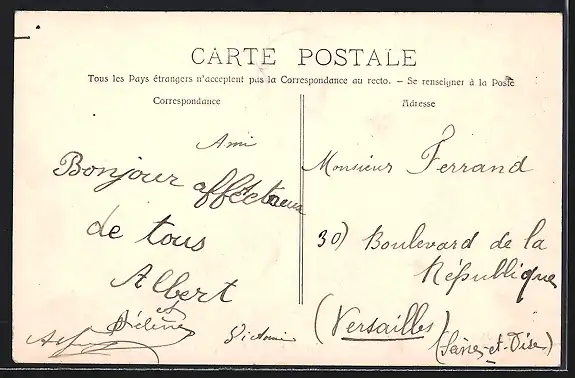 CARTE POSTALE
Tous les Pays étrangers n'acceptent pas la Correspondance au recto. – Se renseigner à la Poste
Correspondance
Ami
Bonjour affectueux
de tous
Albert
et
Hélène
Adresse
Monsieur Ferrand
30) Boulevard de la
République
(Versailles)
(Seine-et-Oise)